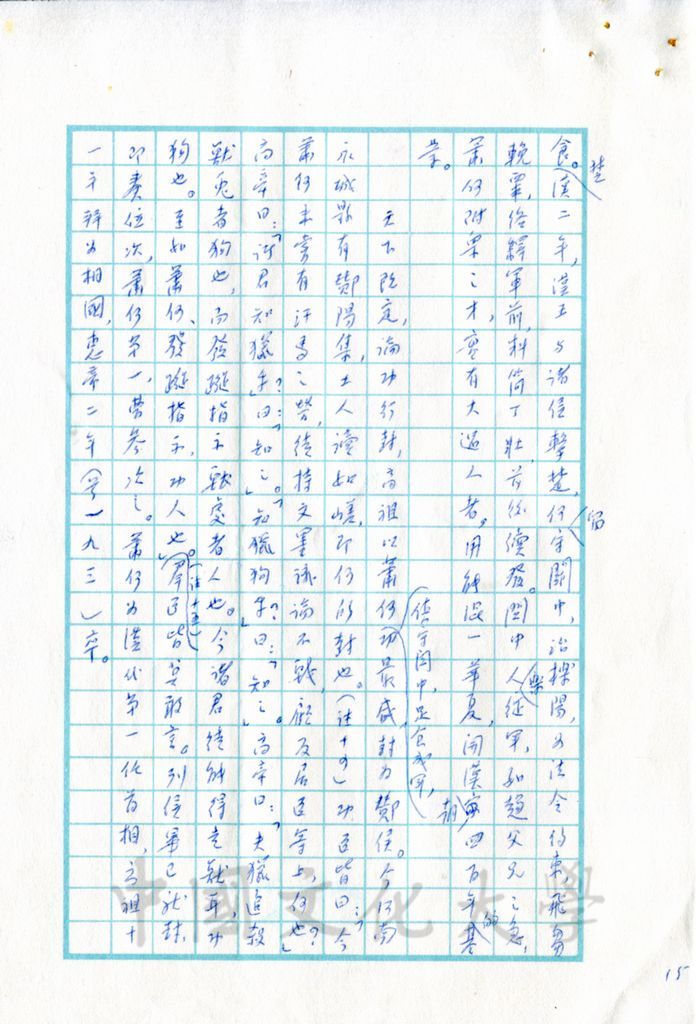 食。漢二年,漢王與諸侯擊楚,何守關中,治櫟陽,為法令約束,飛芻
輓粟,絡繹軍前,料簡丁壯,前後續發。關中人樂從軍,如趨父兄之急,
蕭何附眾之才,實有大過人者。用能混一華夏,開漢朝四百年的基
業。
天下既定,論功行封,高祖以蕭何鎮守關中,足食成軍,功最盛,封為酇侯。今河南
永城縣有酇陽集,土人讀如嵯,即何所封也。(註十四)功臣皆曰:「今
蕭何未嘗有汗馬之勞,徒持文墨議論不戰,顧反居臣等上,何也?」
高帝曰:「諸君知獵乎?」曰:「知之。」「知獵狗乎?」曰:「知之。」高帝曰:「夫獵,追殺
獸兔者狗也,而發蹤指示獸處者人也。今諸君徒能得走獸耳,功
狗也。至如蕭何,發蹤指示,功人也。」(註十五)群臣皆莫敢言。列侯畢已就封,
即奏位次,蕭何第一,曹參次之。蕭何為漢代第一任首相,高祖十
一年拜為相國,惠帝二年(前一九三)卒。
楚
留
15
中國文化大學